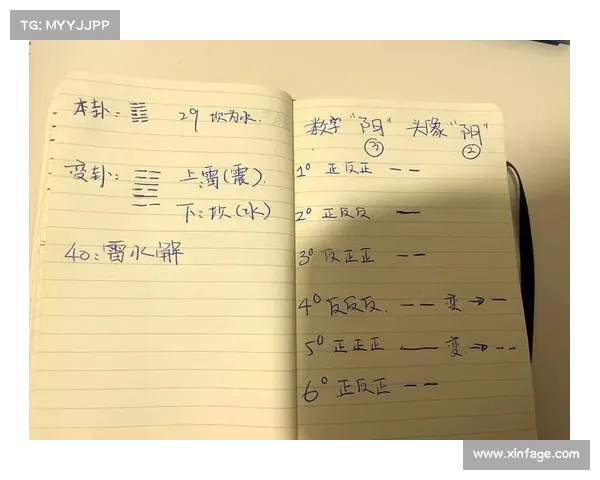 TG: MYYJJPP
本卦: 29 坎为水.
变卦: 上:雷(震).
下:坎(水)
40:雷水解
数字"阳" 头像"阴"
③ ②
1° 正反正
2° 正反反
3° 反正正
4° 反反反. 变→
5° 正正正 变→
6° 正反正
www.xinfage.com